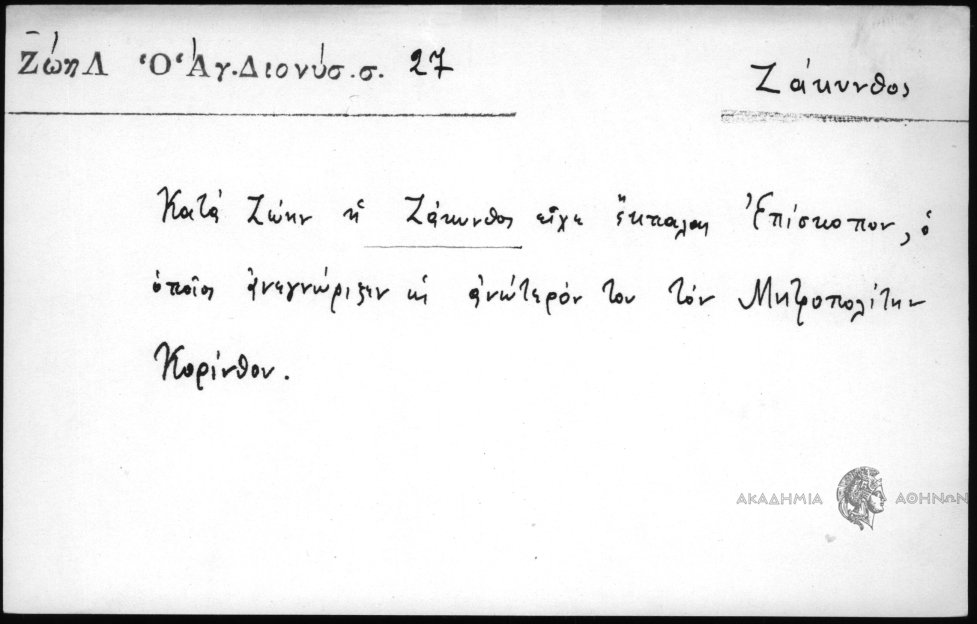 Ζώη Λ Ὁ Ἁγ. Διονύσ. σ. 27
Ζάκυνθος
Κατὰ Ζώην ἡ Ζάκυνθος εἶχε ἔκπαλαι Ἐπίσκοπον, ὁ
ὁποῖος ἀνεγνώριζεν ὡς ἀνώτερόν του τὸν Μητροπολίτην
Κορίνθου.
ΑΚΑΔΗΜΙΑ ΑΘΗΝΩΝ